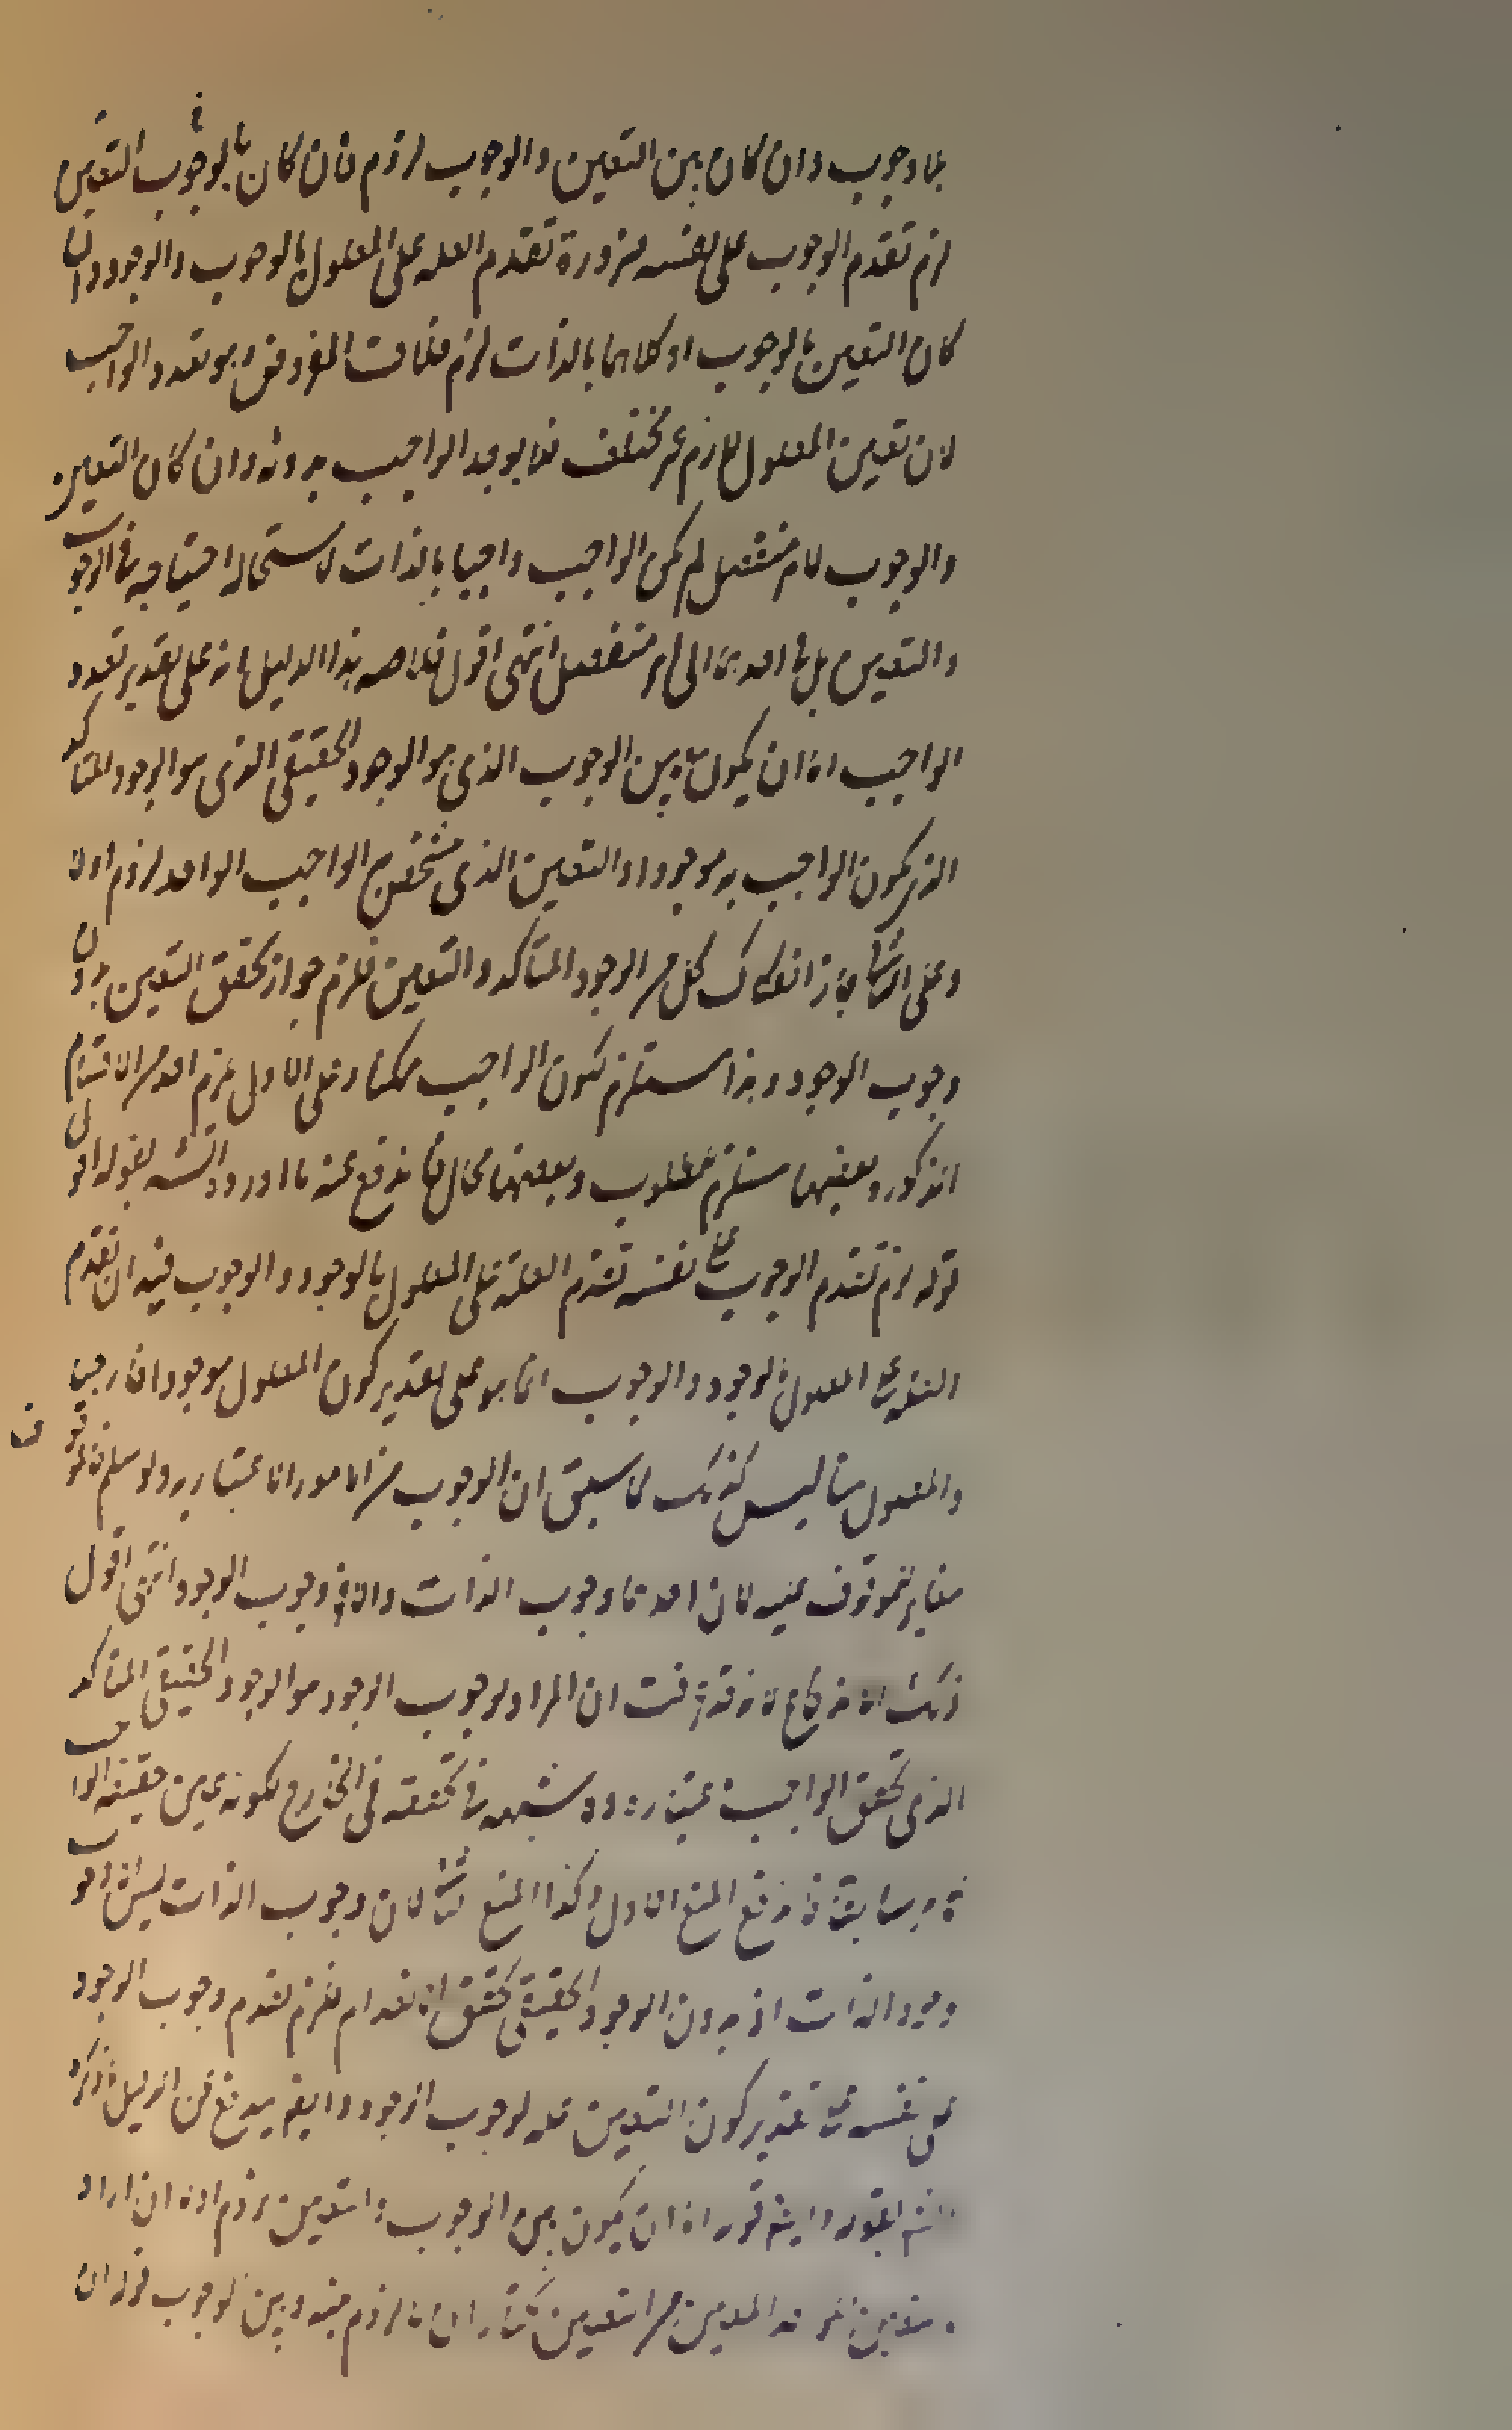 بلا وجوب وان كان بين التعين والوجوب لزوم فان كان الوجوب بالتعين
لزم تقدم الوجوب على نفسه ضرورة تقدم العله على المعلول بالوجوب والوجود وان
كان التعين بالوجوب او كلاهما بالذات لزم خلاف المفروض وهو تعدد الواجب
لان تعين المعلول لازم غير مختلف فلا يوجد الواجب بدونه وان كان التعين
والوجوب لامر منفصل لم يكن الواجب واجبا بالذات لاستحاله احتياجه في الوجوب
والتعين بل في احدهما الى امر منفصل انتهى اقول خلاصه هذا الدليل انه على تقدير تعدد
الواجب اما ان يكون بين الوجوب الذي هو الوجود الحقيقي الذي هو الوجود المتاكد
الذي يكون الواجب به موجودا والتعين الذي يتشخص به الواجب الواحد لزوم او لا
وعلى الثاني جاز انفكاك كل من الوجود المتاكد والتعين فلزم جواز تحقق التعين بدون
وجوب الوجود وهذا يستلزم كون الواجب ممكنا وعلى الاول يلزم احد من الاقسام
المذكوره بعضها مستلزم للمطلوب وبعضها محال فاندفع عنه ما اورده الشه بقوله اقول
قوله لزم تقدم الوجوب على نفسه تقدم العلة على المعلول بالوجود والوجوب فيه ان تقدم
العله على المعلول بالوجود والوجوب انما هو على تقدير كون المعلول موجودا خارجيا
والمعلول هنا ليس كذلك لما سبق ان الوجوب من الامور الاعتباريه ولو سلم فالموقوف
مغاير للموقوف عليه لان احدهما وجوب الذات والاخر وجوب الوجود انتهى اقول
ذلك لانه قد عرفت ان المراد بوجوب الوجود هو الوجود الحقيقي المتاكد
الذي تحقق الواجب باعتباره ولا شبهه في تحققه في الخارج لكونه عين حقيقه الواجب
فاندفع المنع الاول وكذا المنع الثاني لان وجوب الذات ليس الا وجوب
وجود الذات اذ بدون الوجود الحقيقي تحقق انعدام فلزم تقدم وجوب الوجود
على نفسه على تقدير كون التعين عله لوجوب الوجود وايضا يندفع عن الدليل ما ذكره
الشه بقوله وايضا قوله اما ان يكون بين الوجوب والتعين لزوم او لا ان اراد
التعين من التعين نختار ان لا لزوم بينه وبين الوجوب قوله ان